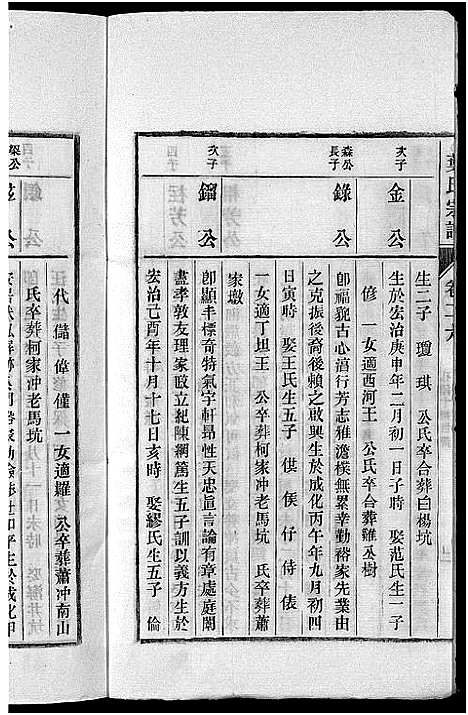 氏宗譜
卷二十六
次子
金公
生二子　瓊　琪　公氏卒合葬白楊坑
生於宏治庚申年二月初一日子時　娶范氏生一子
修　一女適西河王　公氏卒合葬雞公樹
森公長子
錄公
卽福貌古心渣行芳志雅澹樸無累幸勤裕家先業由
之克振後裔後賴之啟興生於成化丙午年九月初四
日寅時　娶王氏生五子　供　侯　仔　侍　俵
一女適丁坦王　公卒葬柯家冲老馬坑　氏卒葬蕭
家墩
次子
鎦公
卽顯丰標奇特氣宇軒昂性天忠直言論有章處庭闈
盡孝敦友理家政立紀陳綱篤生五子訓以義方生於
宏治己酉年十月十七日亥時　娶繆氏生五子　倫
代　儲　偉　僅　一女適羅　公卒葬蕭冲南山
氏卒葬柯家冲老馬坑
公